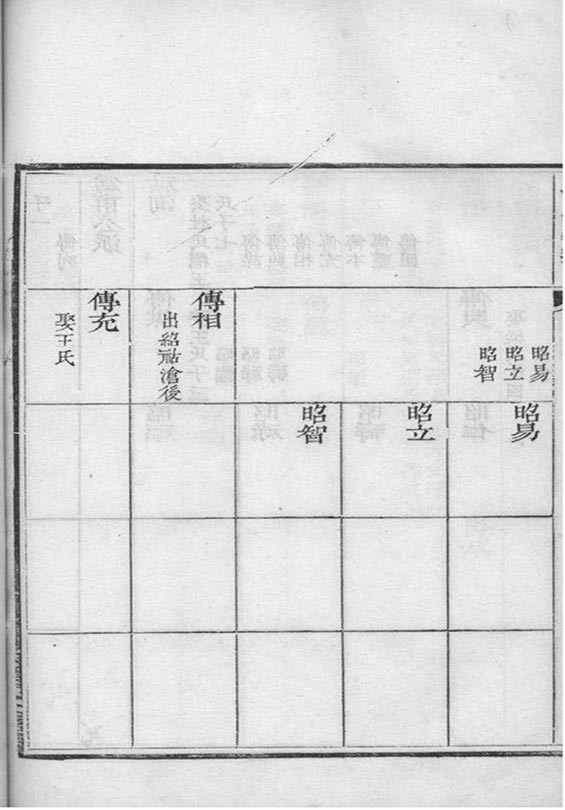 昭易
昭立
昭智
傳相
出紹祜滄後
傳充
娶王氏
昭易
昭立
昭智